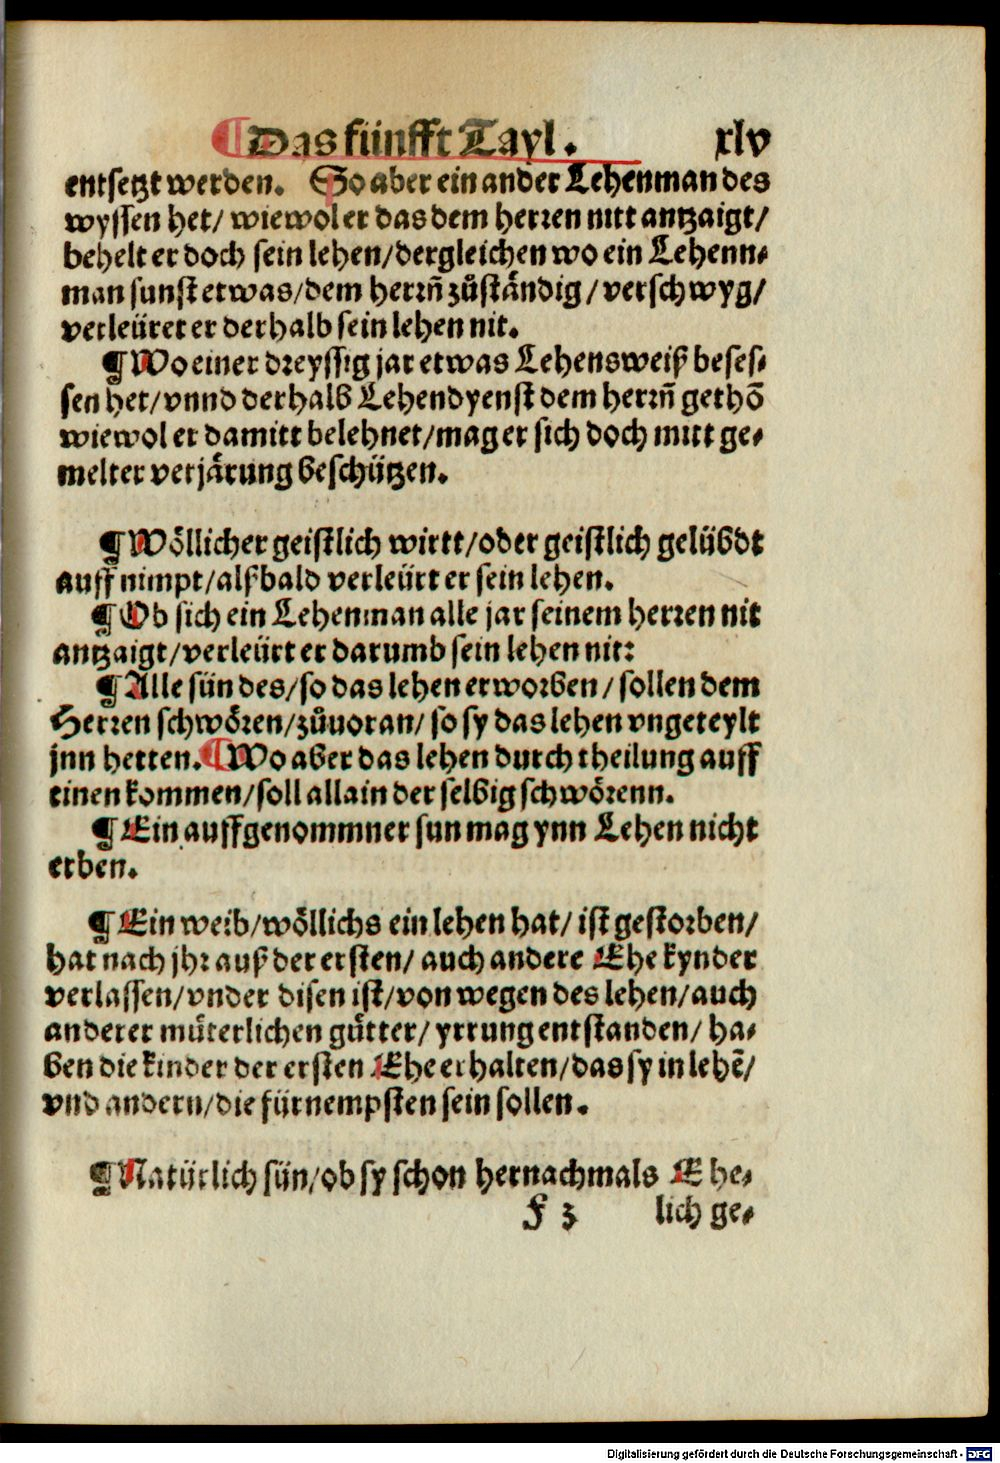 ¶ Das fünfft Tayl. xlv
entsetzt werden. So aber ein ander Lehenman des
wyssen het/ wiewol er das dem herren nitt antzaigt/
behelt er doch sein lehen/dergleichen wo ein Lehenn⸗
man sunst etwas/dem herrn̄ zůständig/verschwyg/
verleüret er derhalb sein lehen nit.
¶ Wo einer dreyssig jar etwas Lehensweiß beses⸗
sen het/vnnd derhalb Lehendyenst dem herrn̄ gethō
wiewol er damitt belehnet/mag er sich doch mitt ge⸗
melter verjärung beschützen.
¶ Wöllicher geistlich wirtt/oder geistlich gelübdt
auff nimpt/alßbald verleürt er sein lehen.
¶ Ob sich ein Lehenman alle jar seinem herren nit
antzaigt/verleürt er darumb sein lehen nit:
¶ Alle sün des/so das lehen erworben/sollen dem
Herren schwören/zůuoran/so sy das lehen vngeteylt
jnn hetten. ¶ Wo aber das lehen durch theilung auff
einen kommen/soll allain der selbig schwörenn.
¶ Ein auffgenommner sun mag ynn Lehen nicht
erben.
¶ Ein weib/wöllichs ein lehen hat/ ist gestorben/
hat nach jhr auß der ersten/ auch andere Ehe kynder
verlassen/vnder disen ist/von wegen des lehen/auch
anderer můterlichen gütter/ yrrung entstanden/ ha⸗
ben die kinder der ersten Ehe erhalten/das sy in lehē/
vnd andern/die fürnempsten sein sollen.
¶ Natürlich sün/ob sy schon hernachmals Ehe⸗
F 3 lich ge⸗
Digitalisierung gefördert durch die Deutsche Forschungsgemeinschaft - DFG